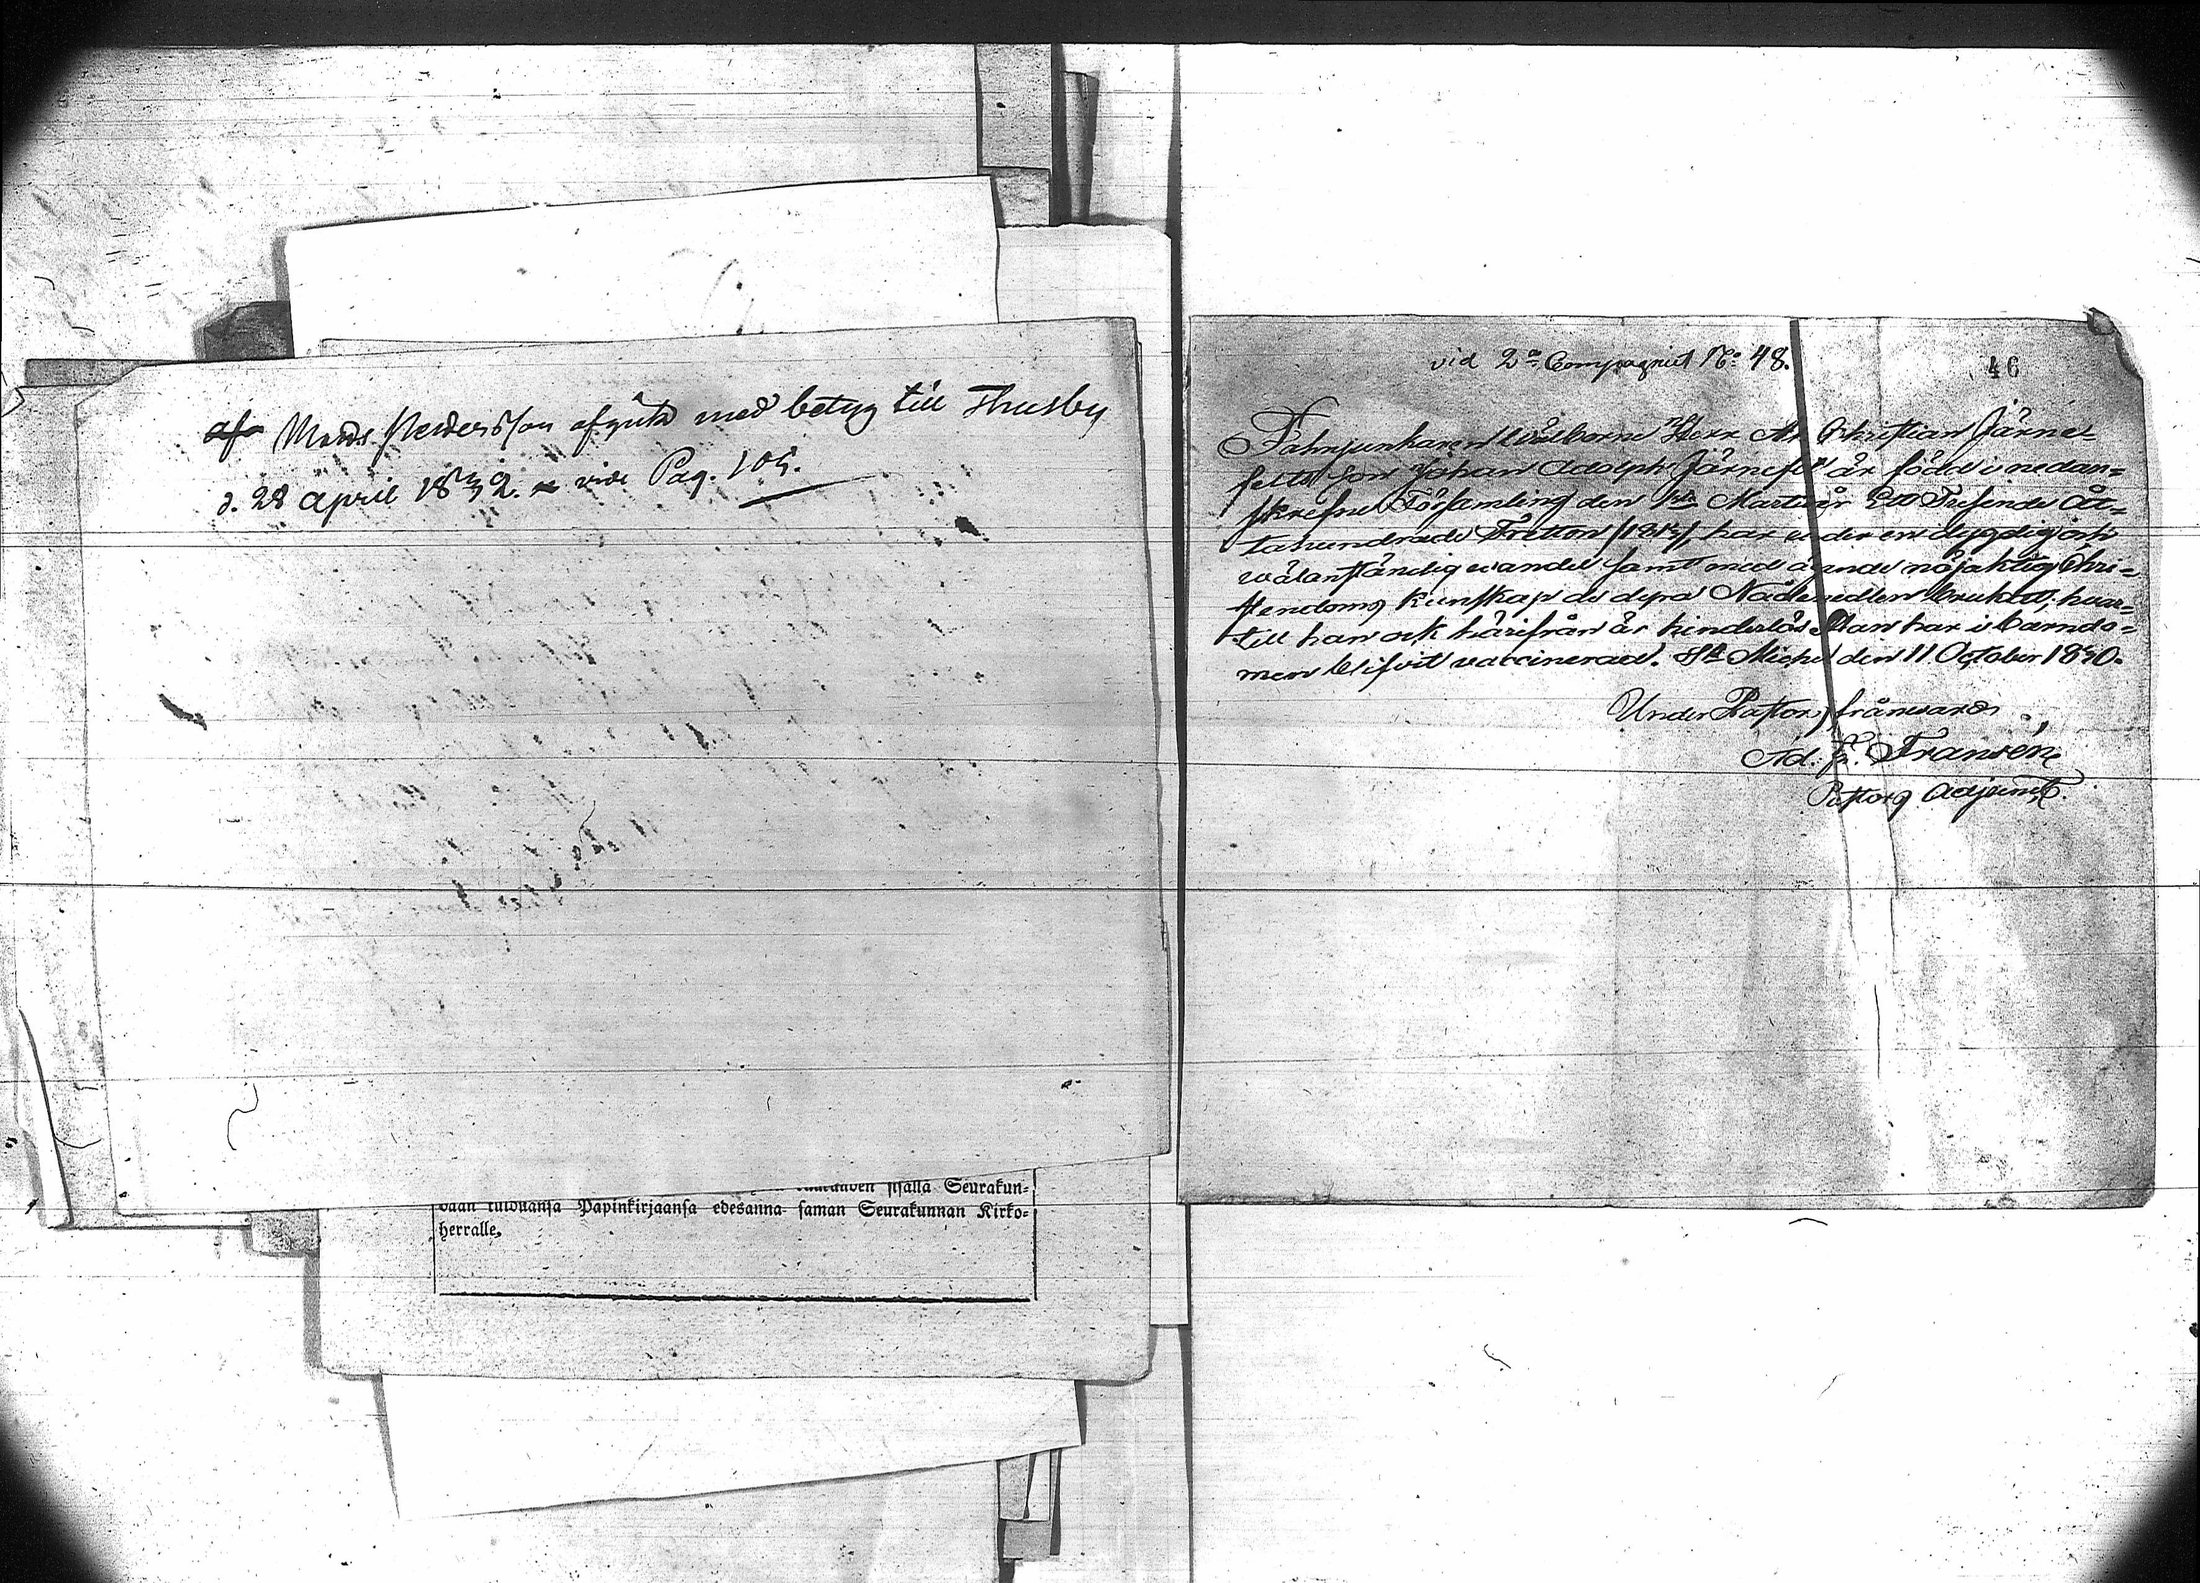 Mads Pedersson afgått med betyg till Thusby
d. 28 April 1842. vide Pag. 105.
sisällä Seurakun-
tulduansa Papinkirjaansa edesannã saman Seurakunnan Kirko-
herralle.
vid 2a Compagniet No 48.
46
Fahnjunkaren Wälborne Herr Christian Järne-
felts Son Johan Adolph Järnefelt är född i nedan-
skrefne Församling den Martii år Ett Tusende Åt-
tahundrade Tretton har under en dygdig och
wälanständig wandel samt med ägande nöjaktig Chri-
stendoms kunskap de dyra Nådemedlen brukat, hvar-
till han ock härifrån är hinderlös. Han har i barndo-
men blifvit vaccinerad. St Michel den 11 October 1840.
Under Pastors frånvaro
Ad. Fr. Fransén
Pastors Adjunct.